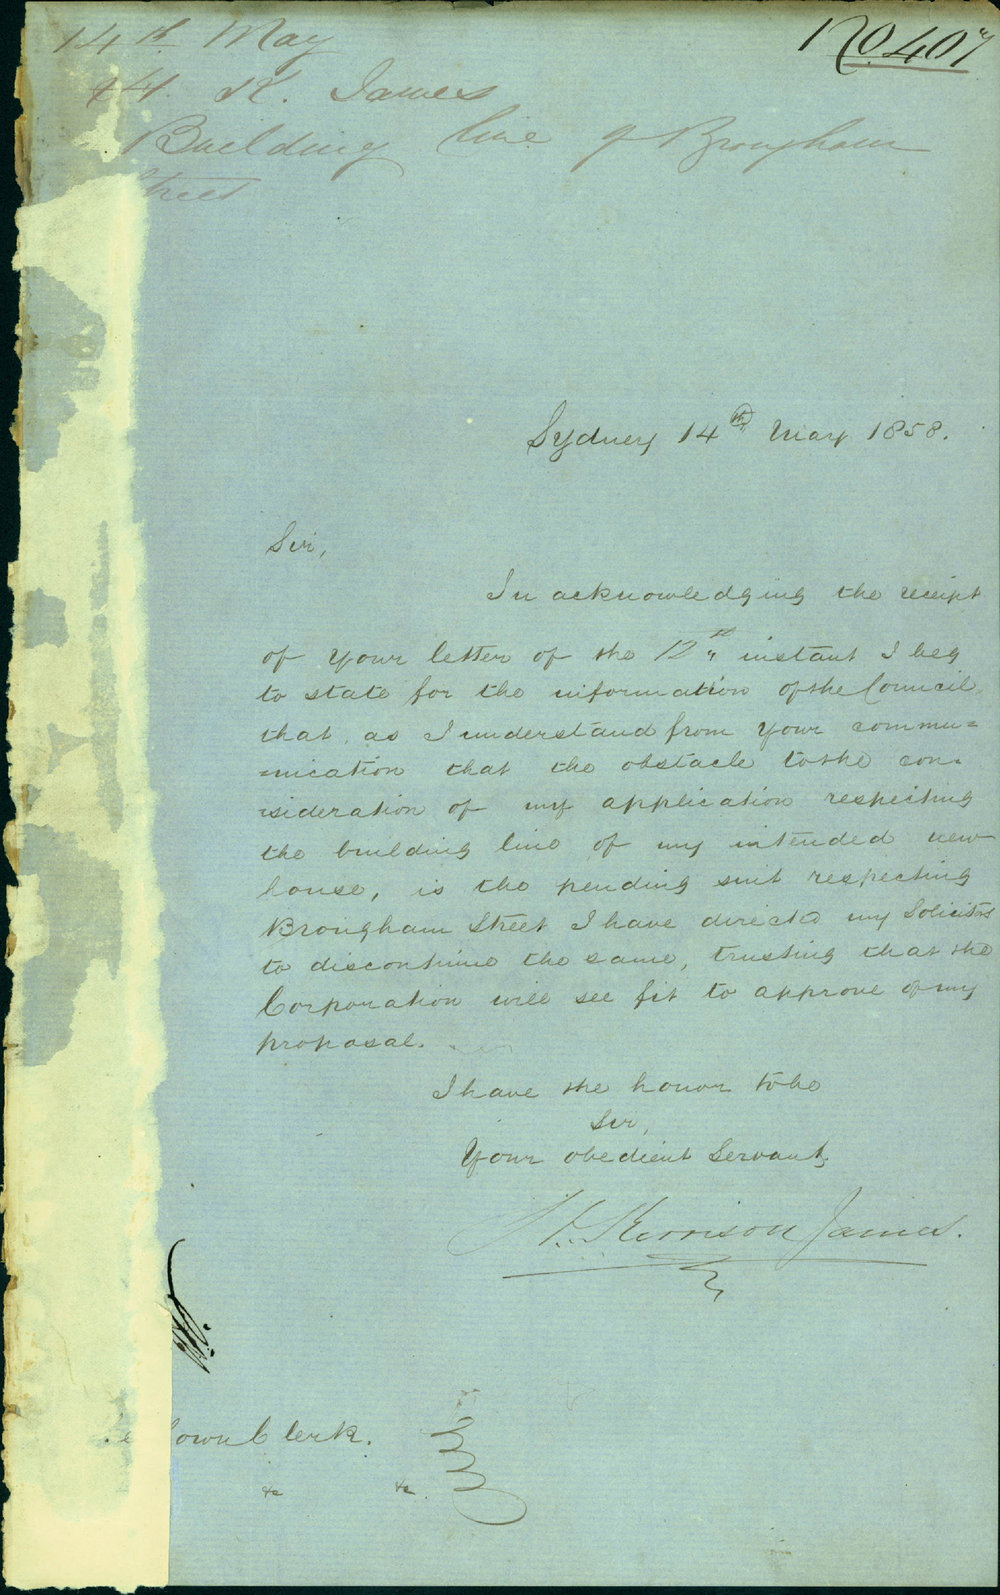 No. 407
14th May
H. K. James
Building line of Brougham
Street
Sydney 14th May 1858.
Sir,
In acknowledging the receipt
of your letter of the 12th instant I beg
to state for the information of the Council
that, as I understand from your commu=
=nication that the obstacle to the con=
=sideration of my application respecting
the building line of my intended new
house, is the pending suit respecting
Brougham Street I have directed my Solicitors
to discontinue the same, trusting that the
Corporation will see fit to approve of my
proposal.
I have the honor to be
Sir,
Your obedient Servant,
H. Kerrison James.
Town Clerk.
&c &c.